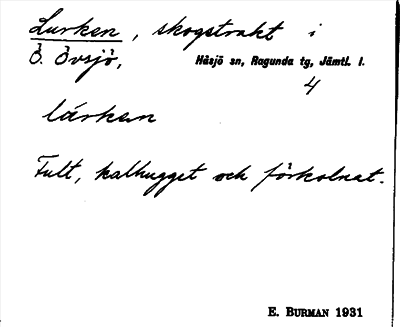 Lurken, skogstrakt i
Ö. Övsjö, Håsjö sn, Ragunda tg, Jämtl. l.
4
lúrken
Fult, kalhugget och förkolnat.
E. BURMAN 1931